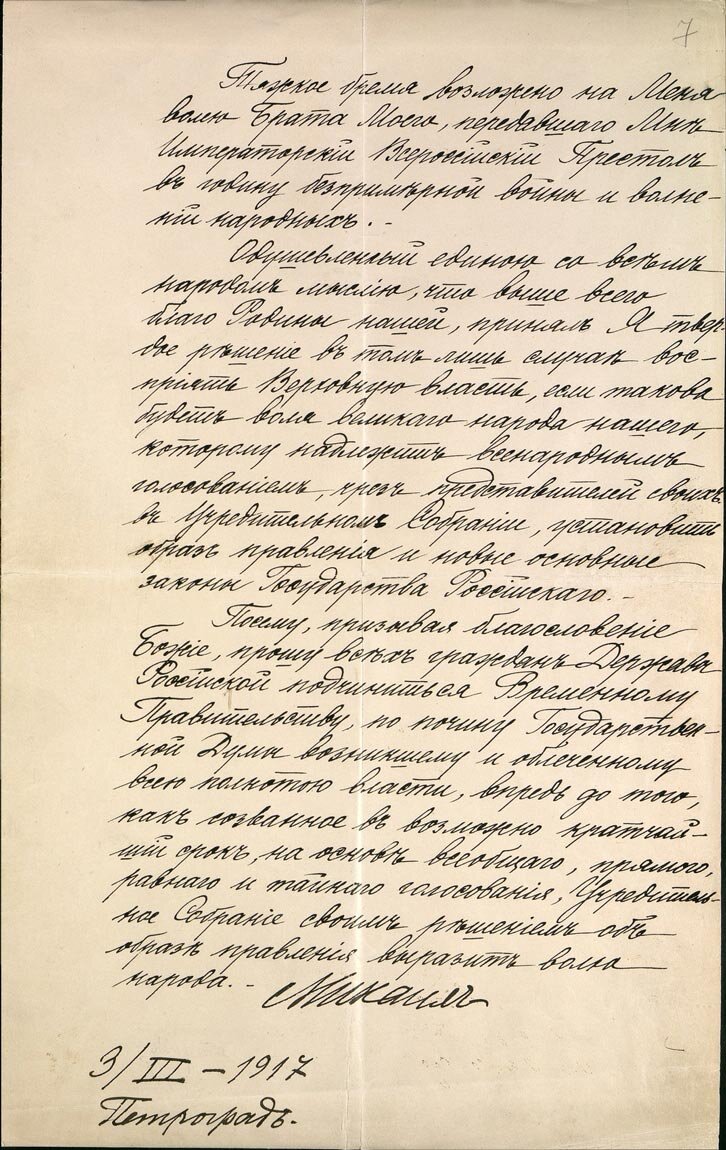 7
Тяжкое бремя возложено на Меня
волею Брата Моего, передавшаго Мнѣ
Императорскій Всероссійскій Престолъ
въ годину безпримѣрной войны и волне-
ній народныхъ. -
Одушевленный единою со всѣмъ
народомъ мыслію, что выше всего
благо Родины нашей, принялъ Я твер-
дое рѣшеніе въ томъ лишь случаѣ вос-
пріять Верховную власть, если такова
будетъ воля великаго народа нашего,
которому надлежитъ всенароднымъ
голосованіемъ, чрезъ представителей своихъ
въ Учредительномъ Собраніи, установить
образъ правленія и новые основные
законы Государства Россійскаго. -
Посему, призывая благословеніе
Божіе, прошу всѣхъ гражданъ Державы
Россійской подчиниться Временному
Правительству, по почину Государствен-
ной Думы возникшему и облеченному
всею полнотою власти, впредь до того,
какъ созванное въ возможно кратчай-
шій срокъ, на основѣ всеобщаго, прямого,
равнаго и тайнаго голосованія, Учредитель-
ное Собраніе своимъ рѣшеніемъ объ
образѣ правленія выразитъ волю
народа. -
Михаилъ
3/III - 1917
Петроградъ.